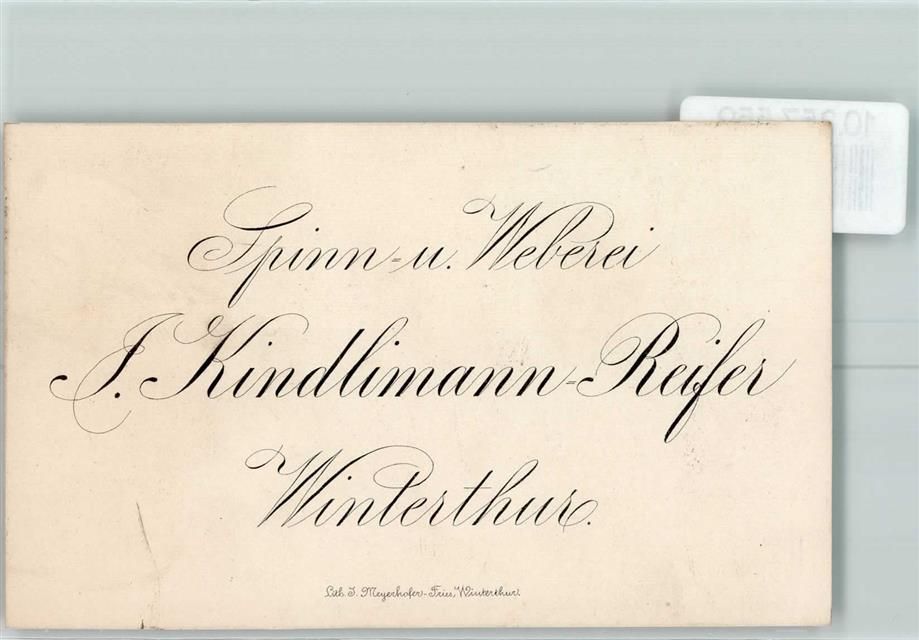 Spinn- u. Weberei
J. Kindlimann-Reifer
Winterthur.
Lith. J. Meyerhofer-Fries, Winterthur.